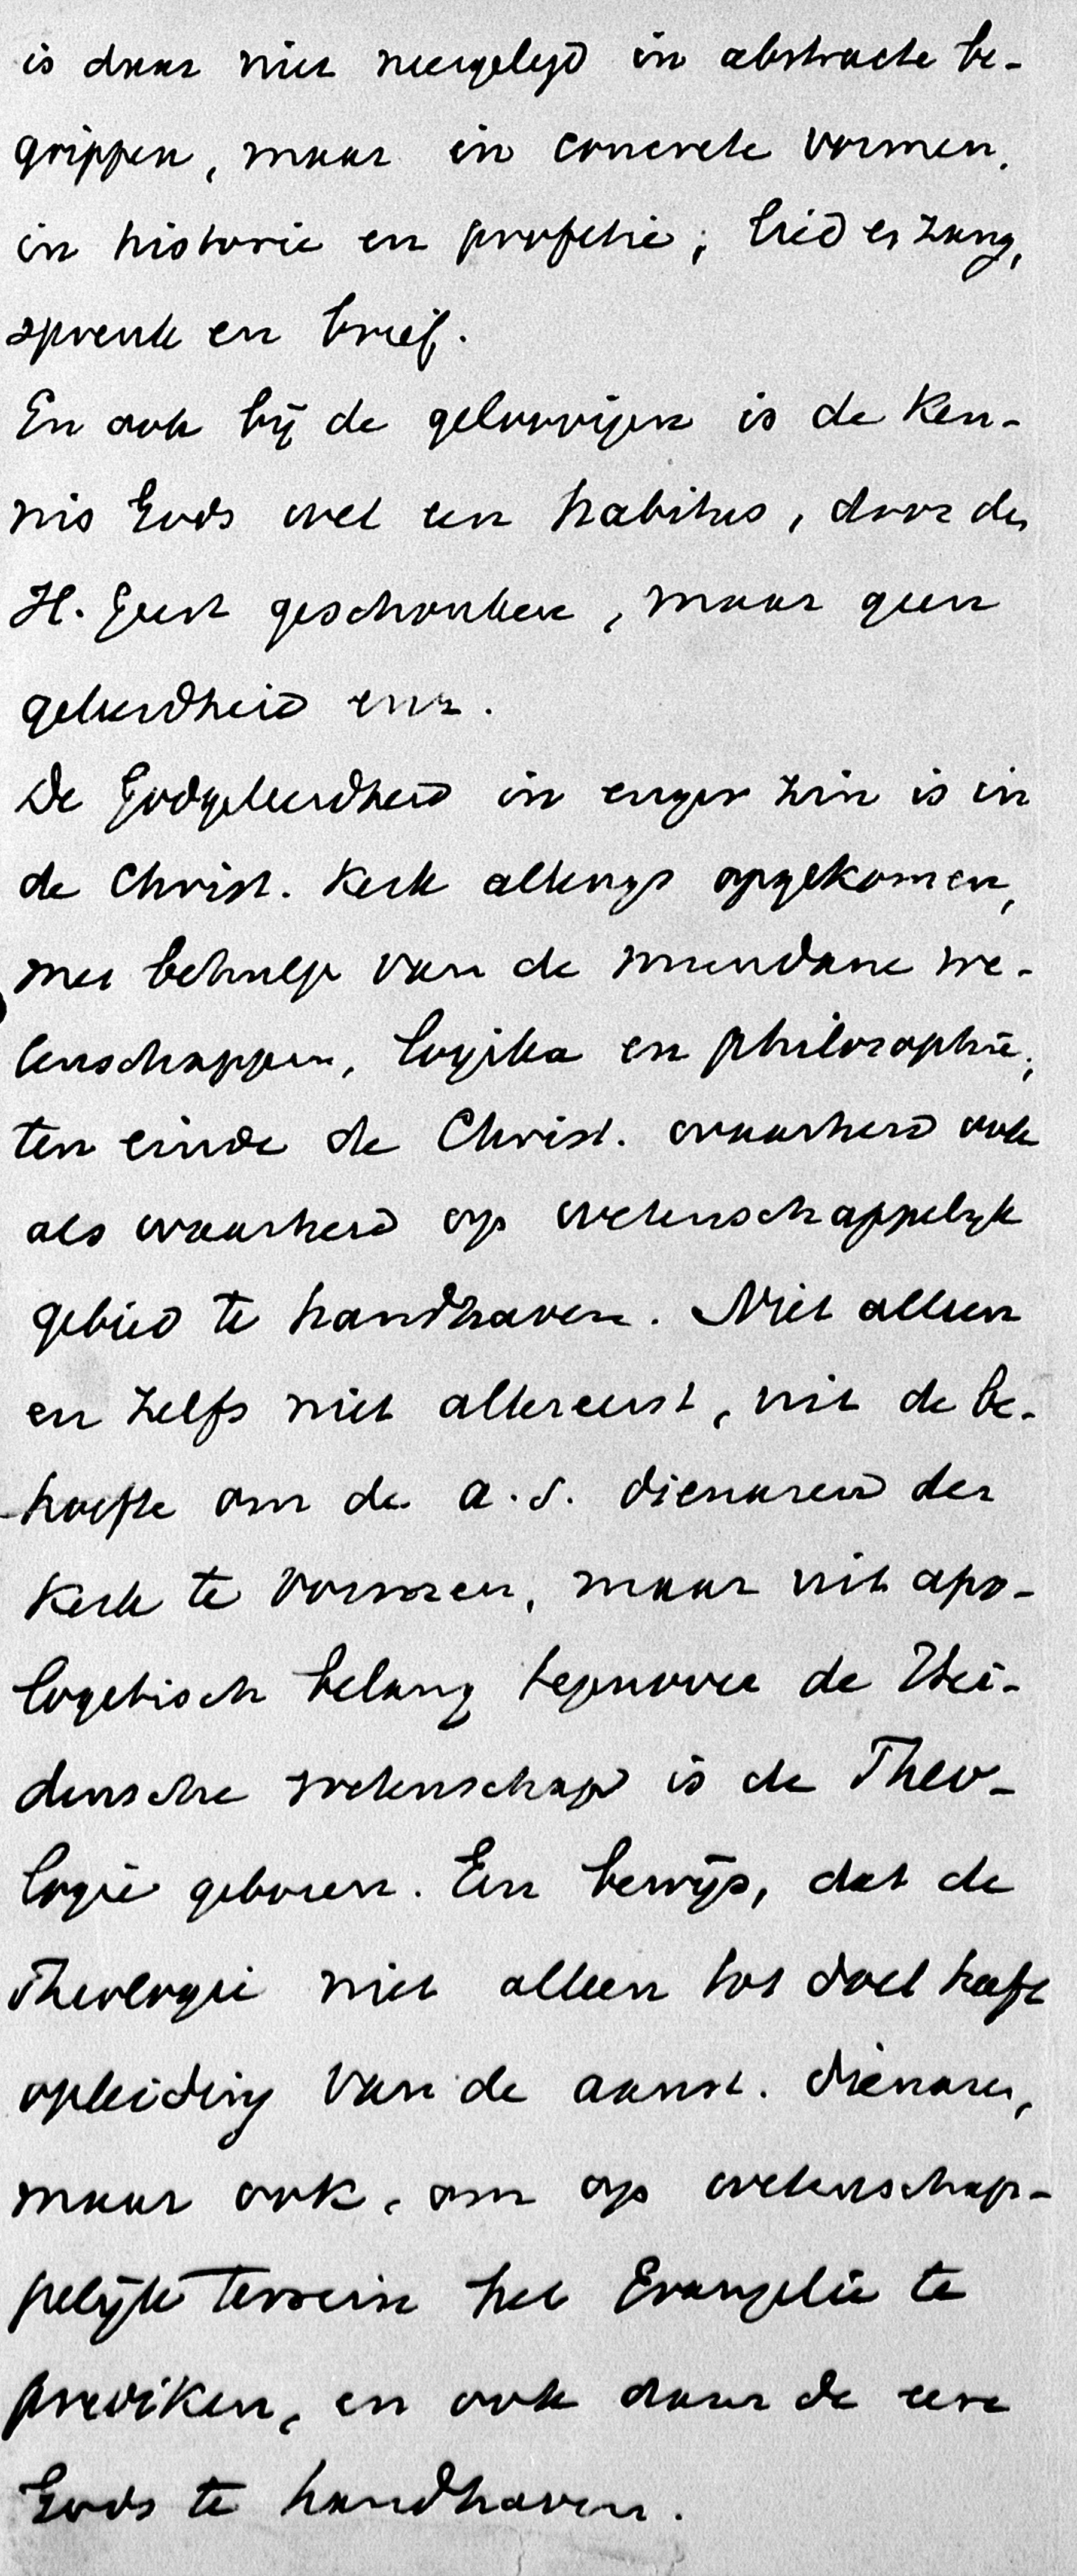 is daar niet neergelegd in abstracte be-
grippen, maar in concrete vormen,
in historie en profetie; lied en zang,
spreuk en brief.
En ook bij de geloovigen is de ken-
nis Gods wel een habitus, door den
H. Geest geschonken, maar geen
geleerdheid enz.
De Godgeleerdheid in enger zin is in
de Christ. kerk allengs opgekomen,
met behulp van de mundane we-
tenschappen, logika en philosophie,
ten einde de Christ. waarheid ook
als waarheid op wetenschappelijk
gebied te handhaven. Niet alleen
en zelfs niet allereerst, uit de be-
hoefte om de a.s. dienaren der
kerk te vormen, maar uit apo-
logetisch belang tegenover de Hei-
densche wetenschap is de Theo-
logie geboren. Een bewijs, dat de
Theologie niet alleen tot doel heeft
opleiding van de aanst. dienaren,
maar ook, om op wetenschap-
pelijk terrein het Evangelie te
prediken, en ook daar de eere
Gods te handhaven.